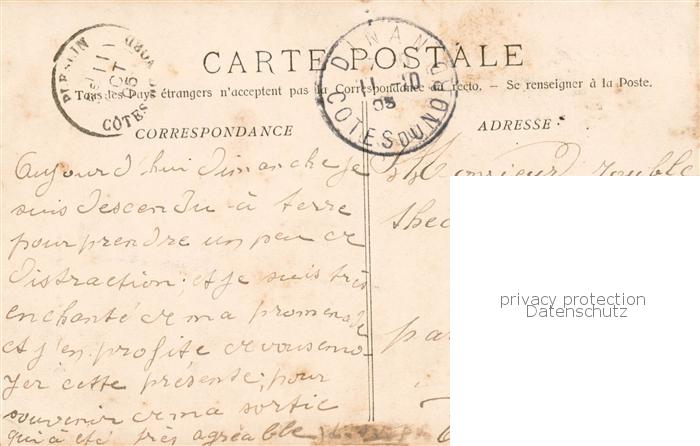 CARTE POSTALE
Tous les Pays étrangers n'acceptent pas la Correspondance au recto. — Se renseigner à la Poste.
CORRESPONDANCE
Aujourd'hui dimanche je
suis descendu à terre
pour prendre un peu de
distraction; et je suis très
enchanté de ma promenade
et j'en profite de vous envo-
yer cette présente; pour
souvenir de ma sortie
qui a été très agréable
ADRESSE
Monsieur
DINAN
11 -10
05
COTES DU NORD
11
OCT
05
CÔTES DU NORD
privacy protection
Datenschutz